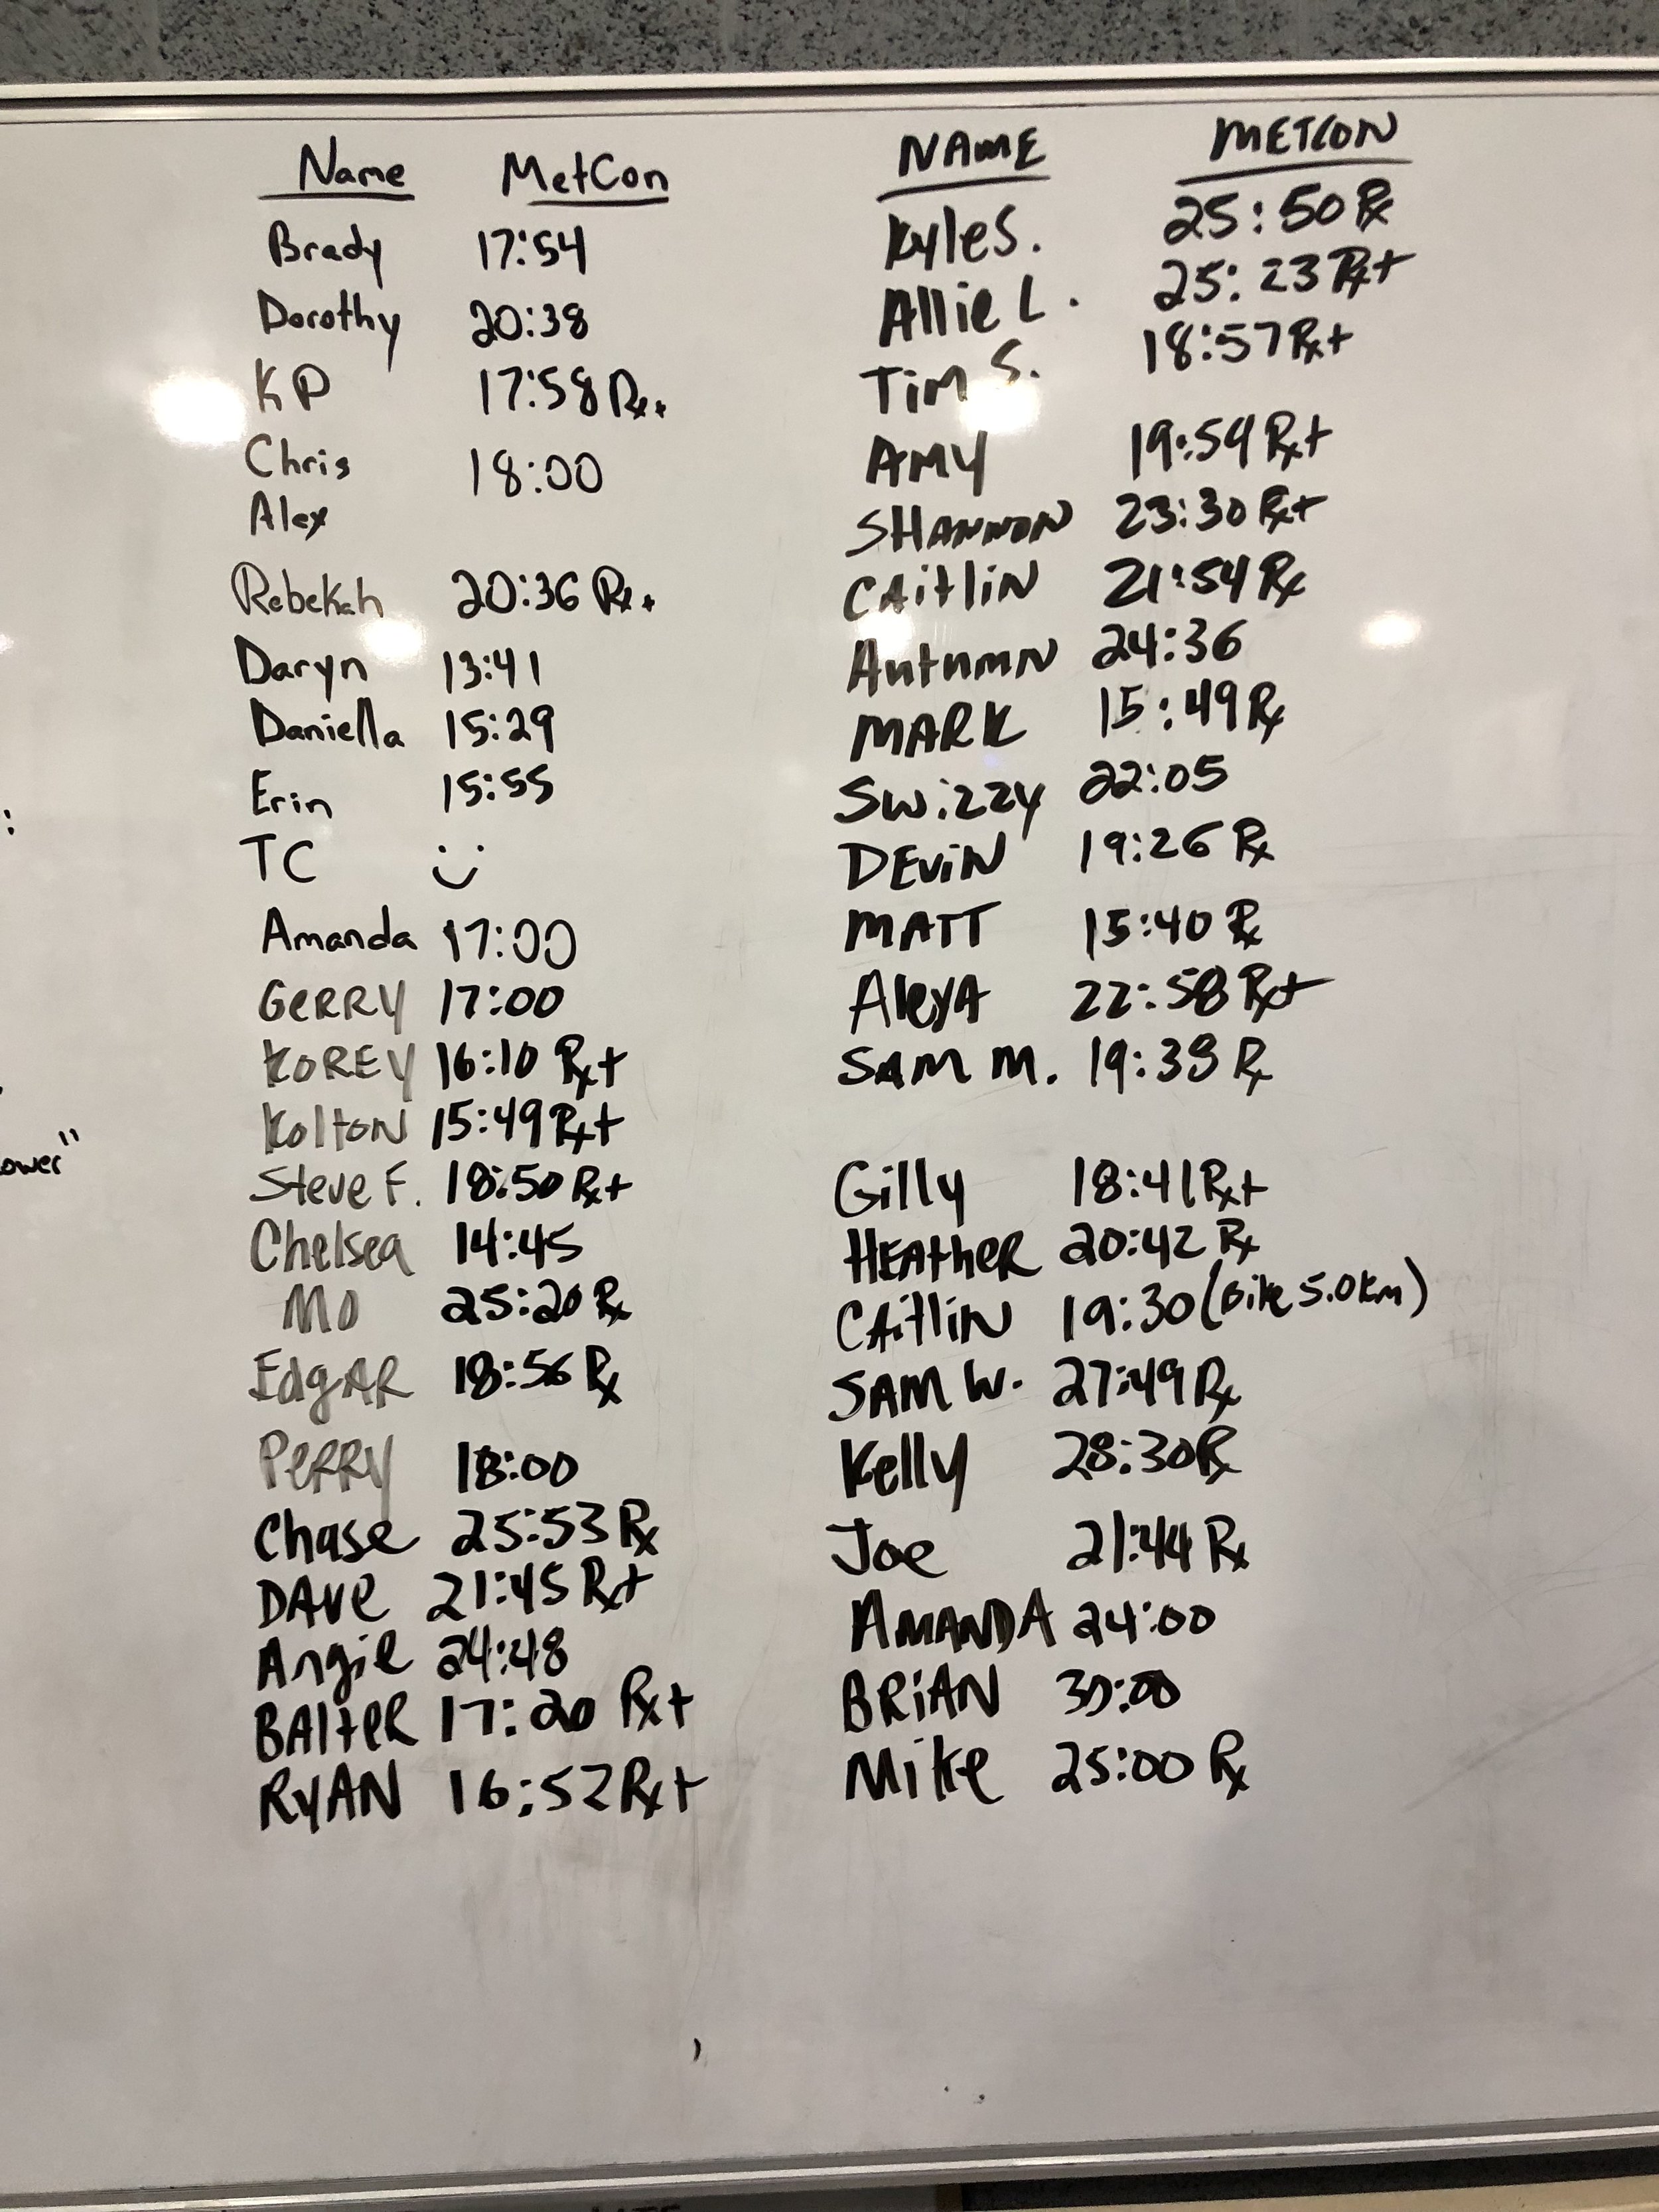 Name MetCon
Brady 17:54
Dorothy 20:38
KP 17:58 Rx+
Chris 18:00
Alex
Rebekah 20:36 Rx+
Daryn 13:41
Daniella 15:29
Erin 15:55
TC
Amanda 17:00
GERRY 17:00
KOREY 16:10 Rx+
Kolton 15:49 Rx+
Steve F. 18:50 Rx+
Chelsea 14:45
MO 25:20 Rx
EdgAR 18:56 Rx
PERRY 18:00
Chase 25:53 Rx
DAve 21:45 Rx+
Angie 24:48
BAlteR 17:20 Rx+
RyAN 16:52 Rx+
NAME METCON
Kyle S. 25:50 Rx
Allie L. 25:23 Rx+
Tim S. 18:57 Rx+
AMY 19:54 Rx+
SHANNON 23:30 Rx+
CAitliN 21:54 Rx
AutumN 24:36
MARK 15:49 Rx
Swizzy 22:05
DEviN 19:26 Rx
MATT 15:40 Rx
AleyA 22:58 Rx+
SAM M. 19:39 Rx
Gilly 18:41 Rx+
HEAtheR 20:42 Rx
CAitliN 19:30 (Bike 5.0 km)
SAM W. 27:49 Rx
Kelly 28:30 Rx
Joe 21:44 Rx
AMANDA 24:00
BRiAN 30:00
Mike 25:00 Rx
ower"